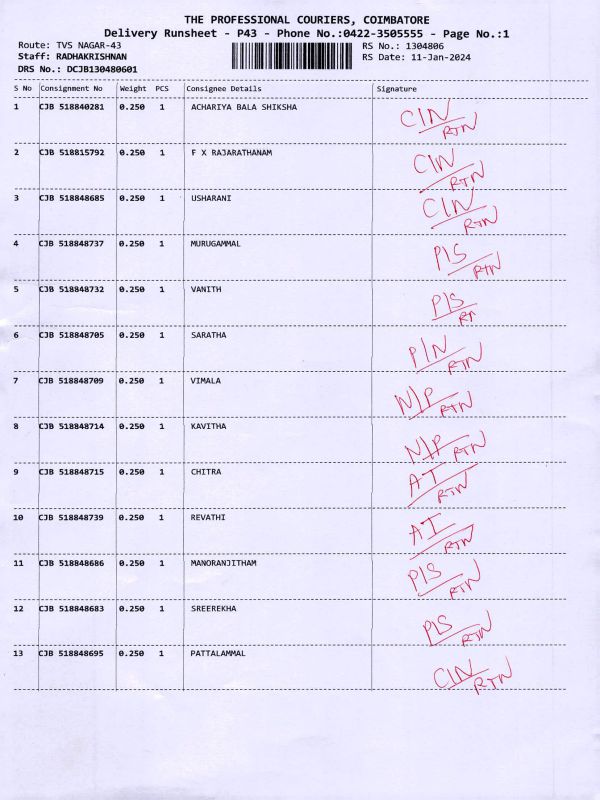 THE PROFESSIONAL COURIERS, COIMBATORE
Delivery Runsheet - P43 - Phone No.:0422-3505555 - Page No.:1
Route: TVS NAGAR-43 RS No.: 1304806
Staff: RADHAKRISHNAN RS Date: 11-Jan-2024
DRS No.: DCJB130480601
S No Consignment No Weight PCS Consignee Details Signature
1 CJB 518840281 0.250 1 ACHARIYA BALA SHIKSHA C/N RTN
2 CJB 518815792 0.250 1 F X RAJARATHANAM C/N RTN
3 CJB 518848685 0.250 1 USHARANI C/N RTN
4 CJB 518848737 0.250 1 MURUGAMMAL P/S RTN
5 CJB 518848732 0.250 1 VANITH P/S
6 CJB 518848705 0.250 1 SARATHA P/N RTN
7 CJB 518848709 0.250 1 VIMALA N/P RTN
8 CJB 518848714 0.250 1 KAVITHA N/P RTN
9 CJB 518848715 0.250 1 CHITRA AI RTN
10 CJB 518848739 0.250 1 REVATHI AI RTN
11 CJB 518848686 0.250 1 MANORANJITHAM P/S RTN
12 CJB 518848683 0.250 1 SREEREKHA P/S RTN
13 CJB 518848695 0.250 1 PATTALAMMAL C/N RTN